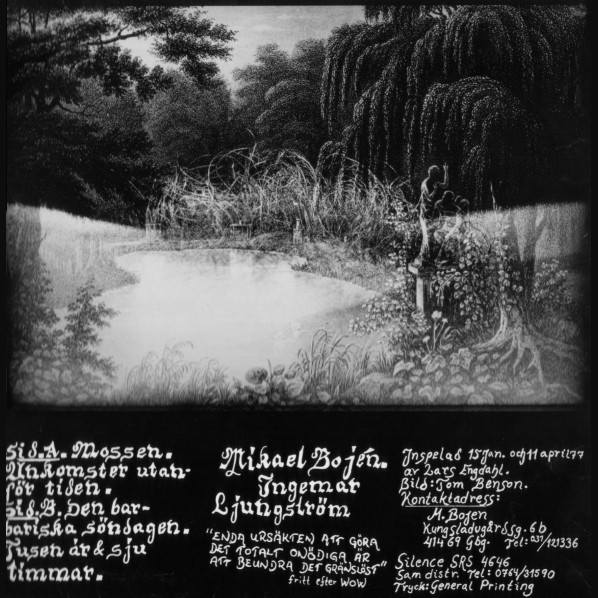 Sid.A. Mossen.
Ankomster utan-
för tiden.
Sid.B. Den bar-
bariska söndagen.
Tusen år & sju
timmar.
Mikael Bojén.
Ingemar
Ljungström
"ENDA URSÄKTEN ATT GÖRA
DET TOTALT ONÖDIGA ÄR
ATT BEUNDRA DET GRÄNSLÖST"
fritt efter WOW
Inspelad 15 jan. och 11 april 77
av Lars Engdahl.
Bild: Tom Benson.
Kontaktadress:
M. Bojen
Kungsladugårdsg. 6b
414 69 Gbg. Tel: 031/121336
Silence SRS 4646
Sam distr. Tel: 0764/31590
Tryck: General Printing